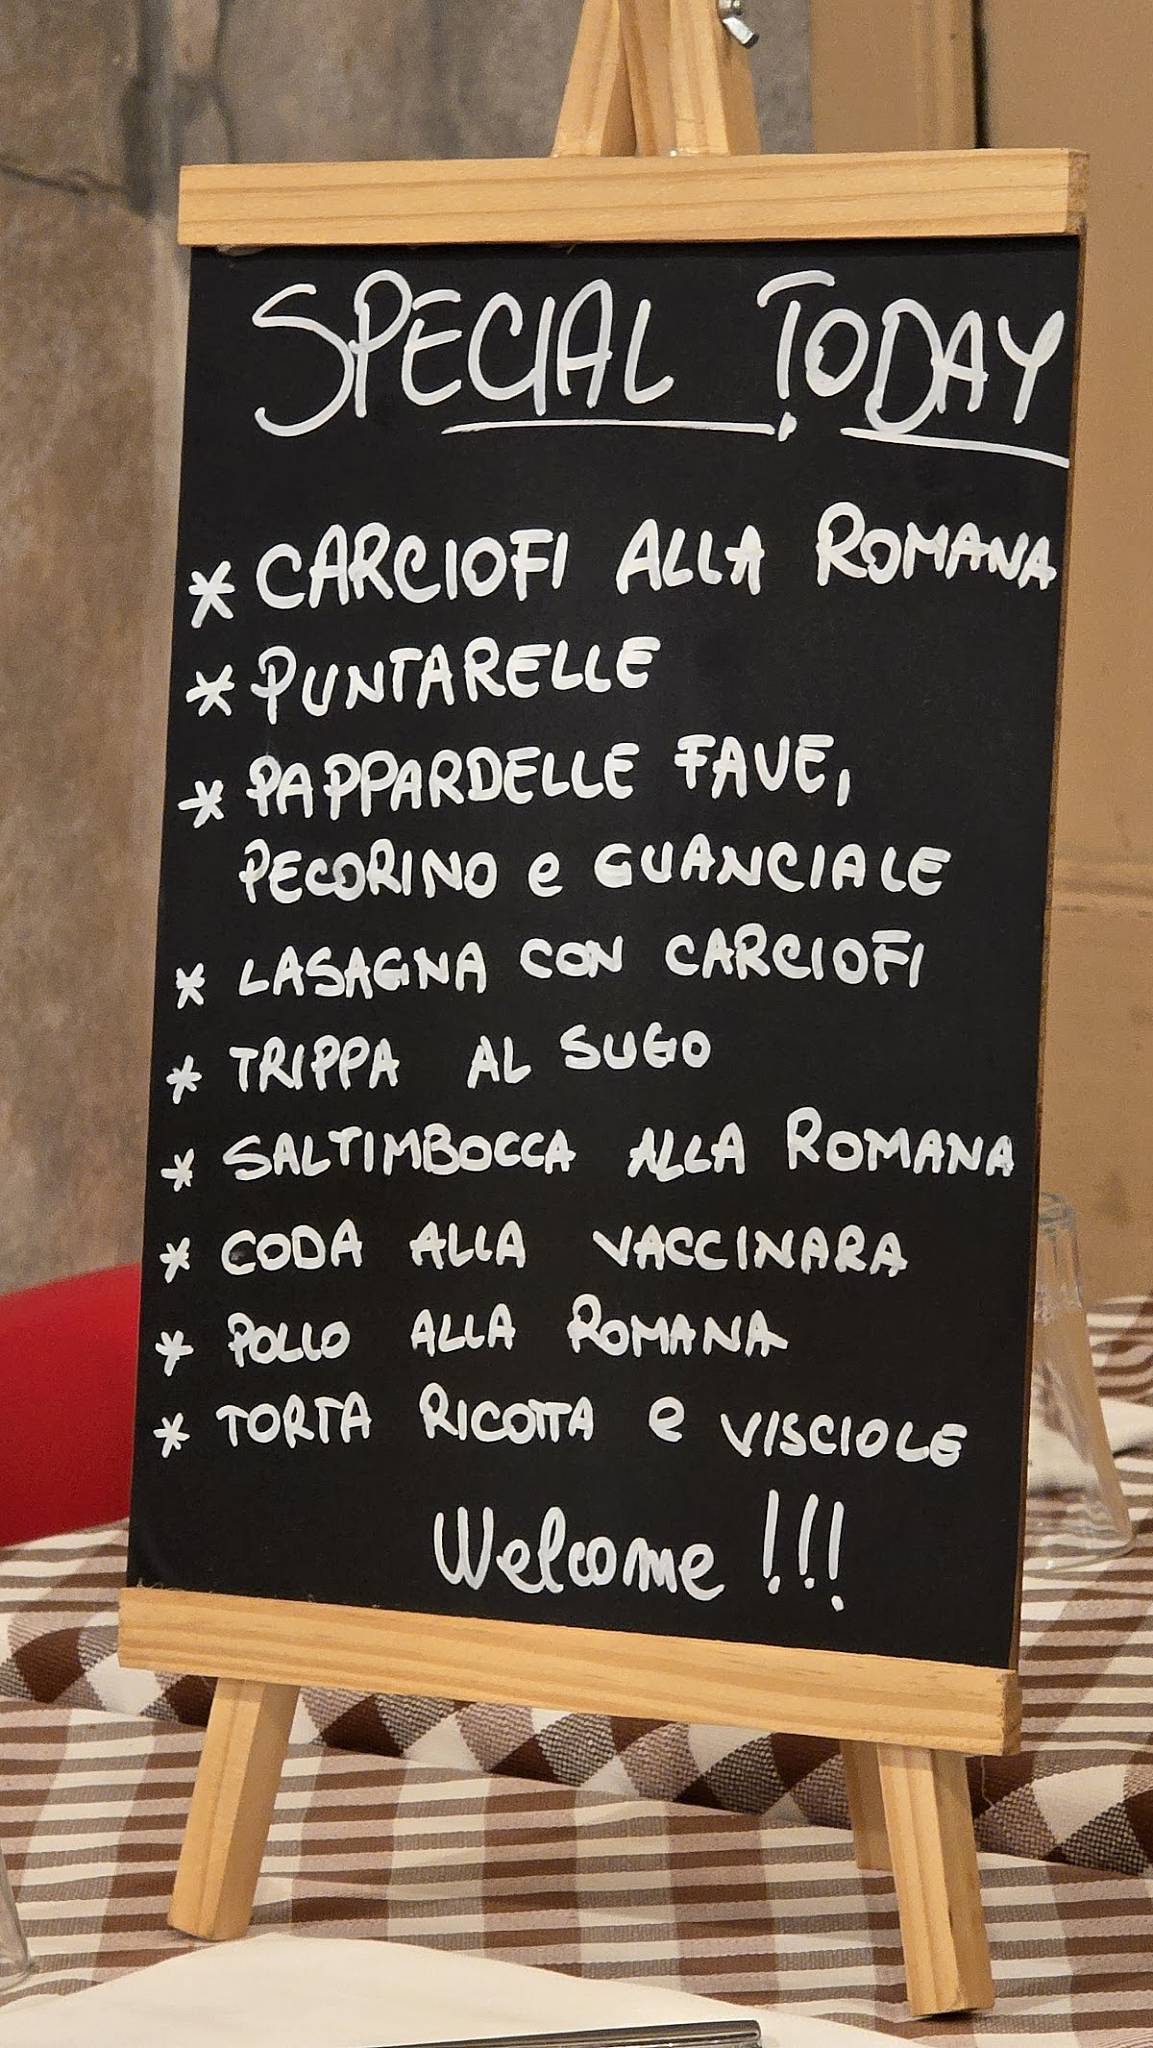 SPECIAL TODAY
* CARCIOFI ALLA ROMANA
* PUNTARELLE
* PAPPARDELLE FAVE,
PECORINO e GUANCIALE
* LASAGNA CON CARCIOFI
* TRIPPA AL SUGO
* SALTIMBOCCA ALLA ROMANA
* CODA ALLA VACCINARA
* POLLO ALLA ROMANA
* TORTA RICOTTA e VISCIOLE
Welcome !!!